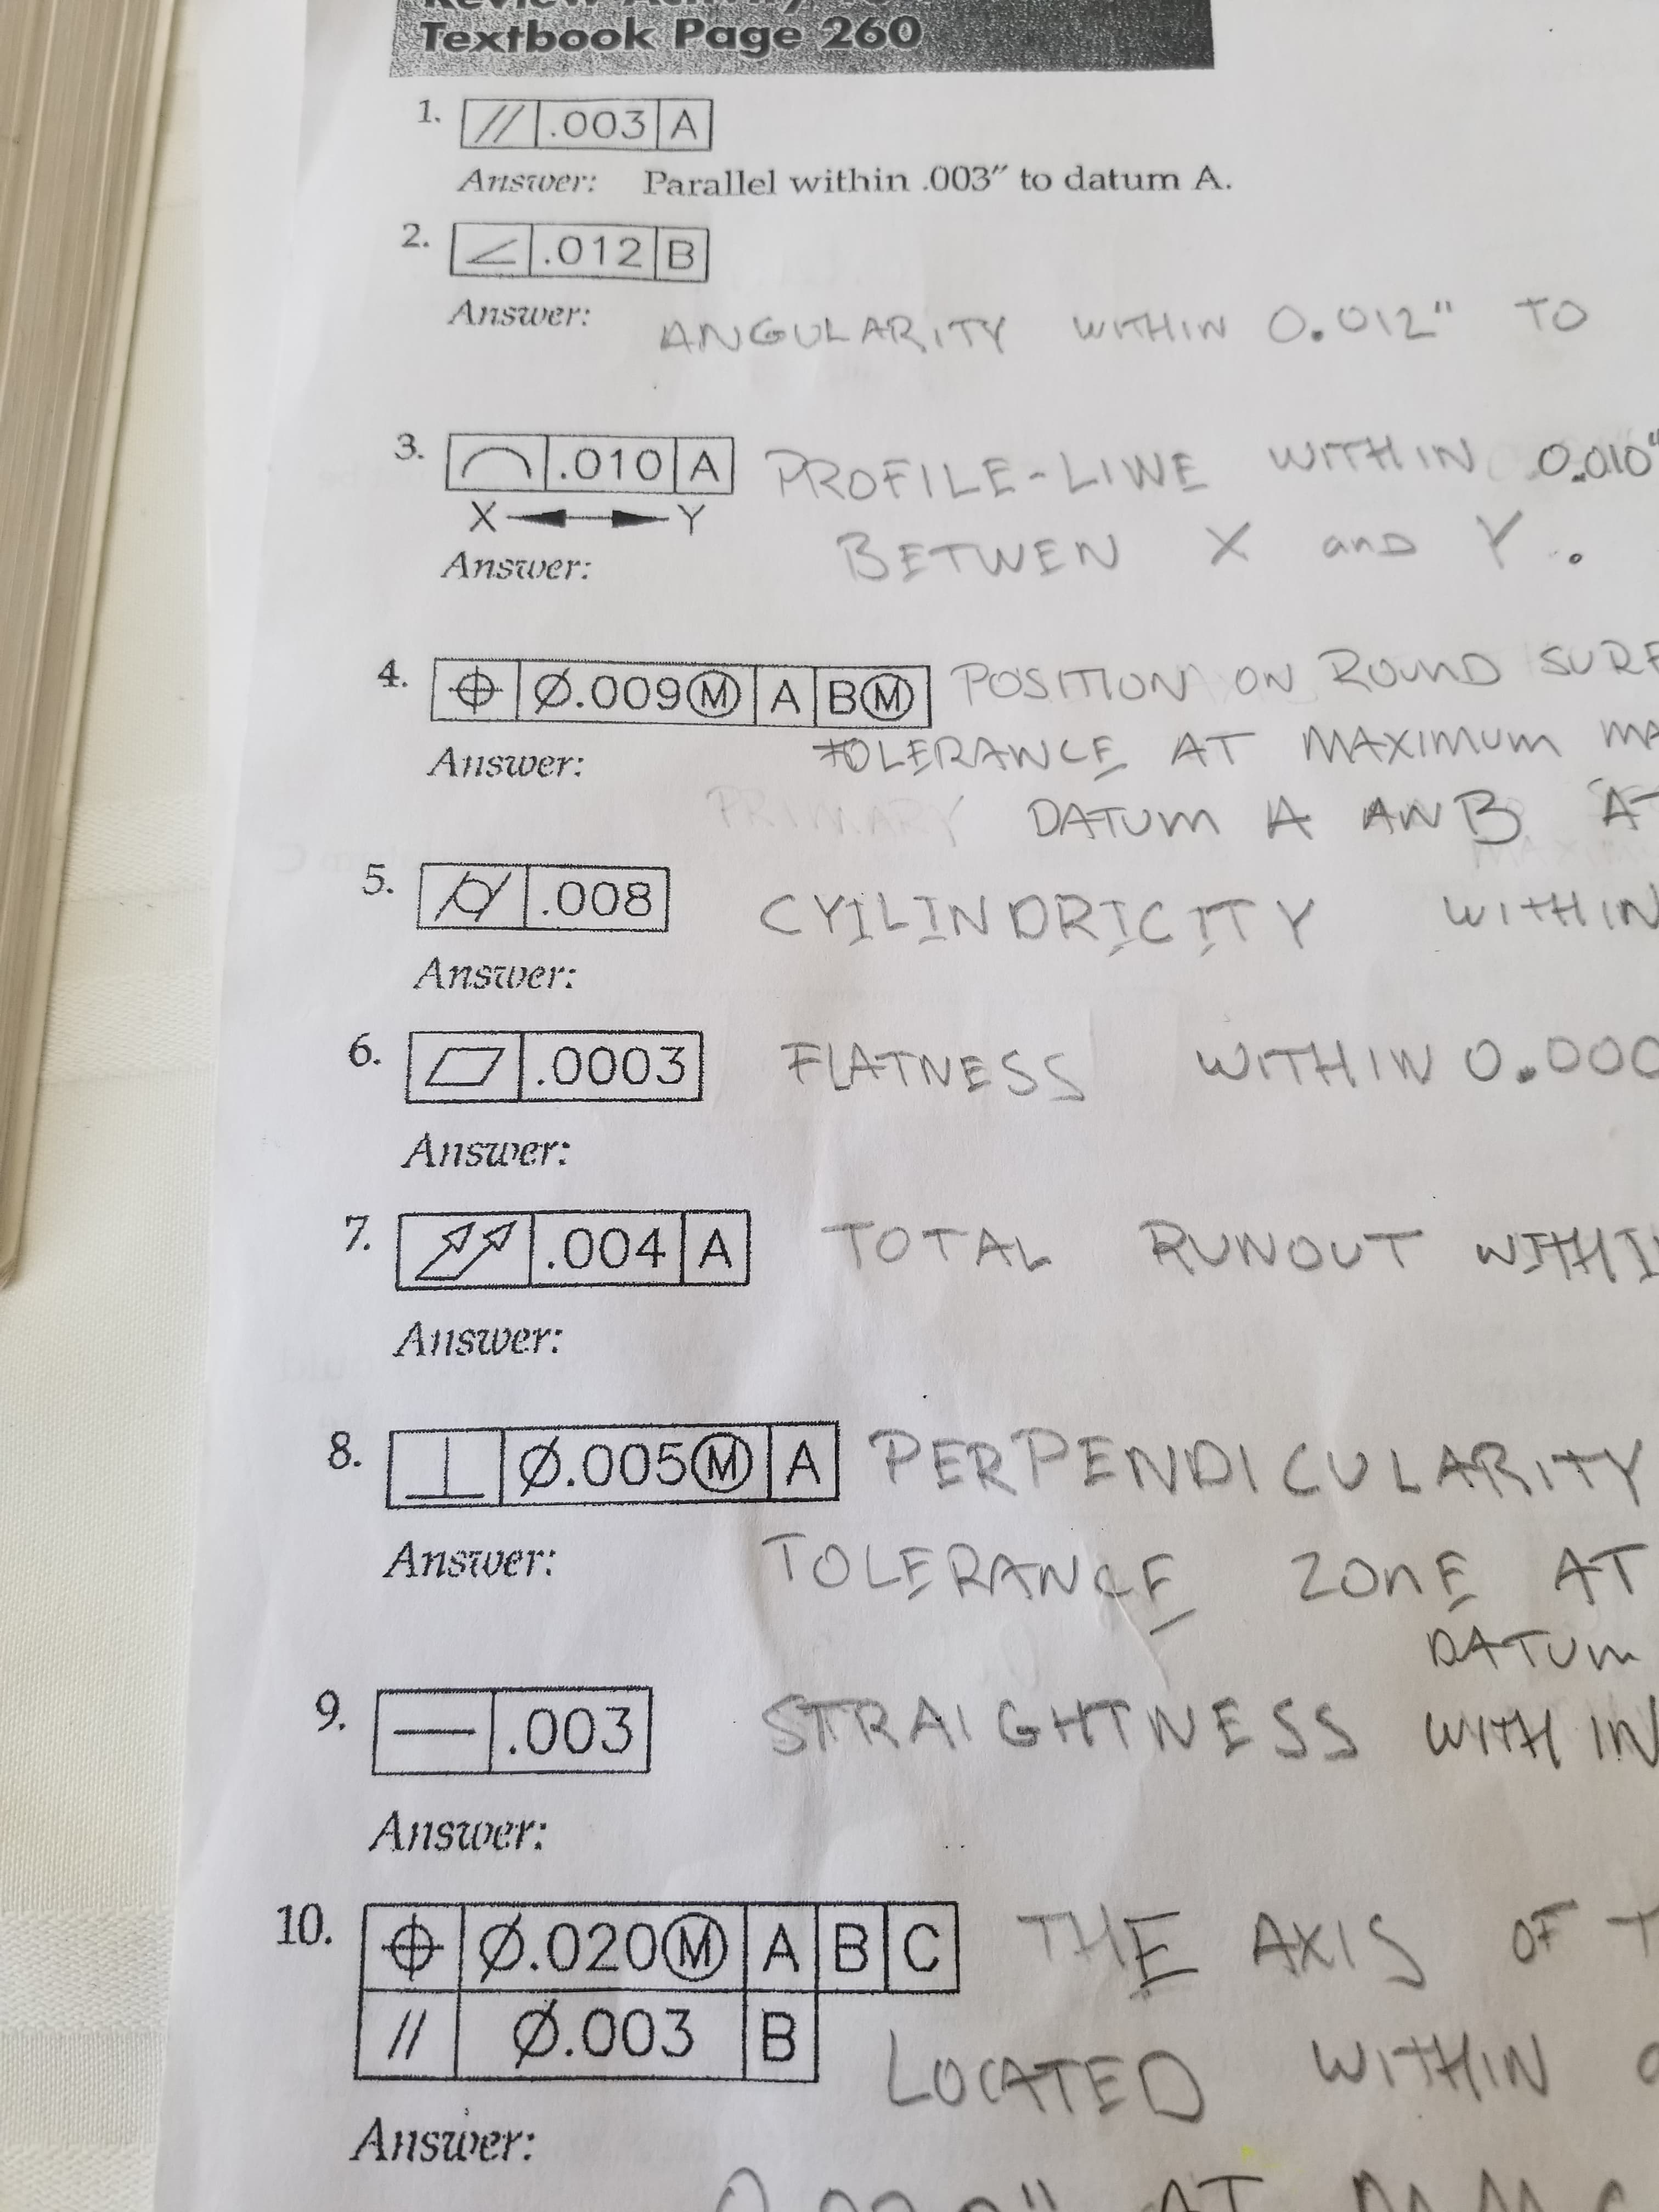 Textbook Page 260
1. // .003 A
Answer: Parallel within .003″ to datum A.
2. ∠ .012 B
Answer: ANGULARITY WITHIN 0.012" TO
3. ⌒ .010 A PROFILE-LINE WITHIN 0.010"
X Y
BETWEN X and Y.
Answer:
4. ⌖ Ø.009Ⓜ A BⓂ POSITION ON ROUND SURF
Answer: TOLERANCE AT MAXIMUM MA
PRIMARY DATUM A AN B AT
5. ⌭ .008 CYILINDRICITY WITHIN
Answer:
6. ⏥ .0003 FLATNESS WITHIN 0.000
Answer:
7. ⌰ .004 A TOTAL RUNOUT WITHI
Answer:
8. ⊥ Ø.005Ⓜ A PERPENDICULARITY
Answer: TOLERANCE ZONE AT
DATUM
9. — .003 STRAIGHTNESS WITHIN
Answer:
10. ⌖ Ø.020Ⓜ A B C THE AXIS OF T
// Ø.003 B LOCATED WITHIN
Answer:
AT MMC